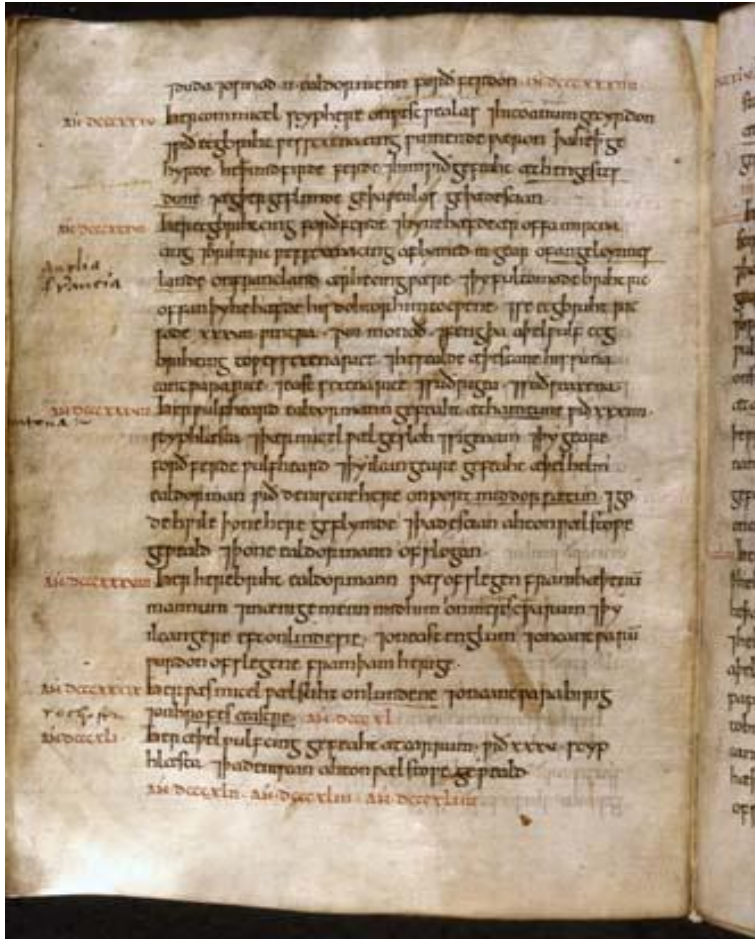 ⁊duda ⁊osmod .ii. ealdormenn forðferdon. AN DCCCXXXIIII
AN DCCCXXXV her com micel scyphere on ƿestƿealas ⁊hi to anum gecyrdon
⁊ƿið ecgbriht ƿesseaxena cing ƿinnende ƿæron. þa he ꝥ ge
hyrde he þa mid firde ferde ⁊him ƿið gefeaht æt hengestes
dune ⁊ægþer geflimde ge þa ƿealas ge þa deniscan.
AN DCCCXXXVI her ecgbriht cing forðferde ⁊hyne hæfde ær offa mircna
cing ⁊brihtric ƿesseaxena cing aflymed .iii. gear of angelcynnes
Anglia
francia
lande on francland ær he cing ƿære. ⁊þy fultomode brihtric
offan þy he hæfde his dohtor him to cƿene. ⁊se ecgbriht ric
sode xxxvii ƿintra. ⁊vii monoð. ⁊feng þa aþelƿulf ecg
brihting to ƿesseaxena rice. ⁊he sealde æþelstane his suna
cantƿara rice. ⁊east seaxena rice. ⁊suðrigea. ⁊suðseaxena.
AN DCCCXXXVII her ƿulfheard ealdormann gefeaht æt hamtune ƿið xxxiii.
scyphlæsta ⁊þær micel ƿæl gesloh ⁊sige nam ⁊þy geare
forðferde ƿulfheard ⁊þy ilcan geare gefeaht æþelhelm
ealdorman ƿið deniscne here on port mid dorsætun ⁊go
de hƿile þone here geflymde ⁊þa deniscan ahton ƿælstoƿe
geƿeald ⁊þone ealdormann ofslogan.
AN DCCCXXXVIII her herebriht ealdormann ƿæs ofslegen fram hæþenū
mannum ⁊mænige menn mid him on merscƿarum ⁊þy
ilcan geare eft on lindesse. ⁊on east englum ⁊on cantƿarū
ƿurdon ofslegene fram þam herige.
AN DCCCXXXIX her ƿæs micel ƿælsliht on lundene ⁊on cantƿarabyrig
⁊on hrofes ceastre. AN DCCCXL
AN DCCCXLI her æþelƿulf cing gefeaht æt carrum. ƿið xxxv. scyp
hlæsta ⁊þa deniscan ahton ƿælstoƿe geƿeald.
AN DCCCXLII. AN DCCCXLIII. AN DCCCXLIIII